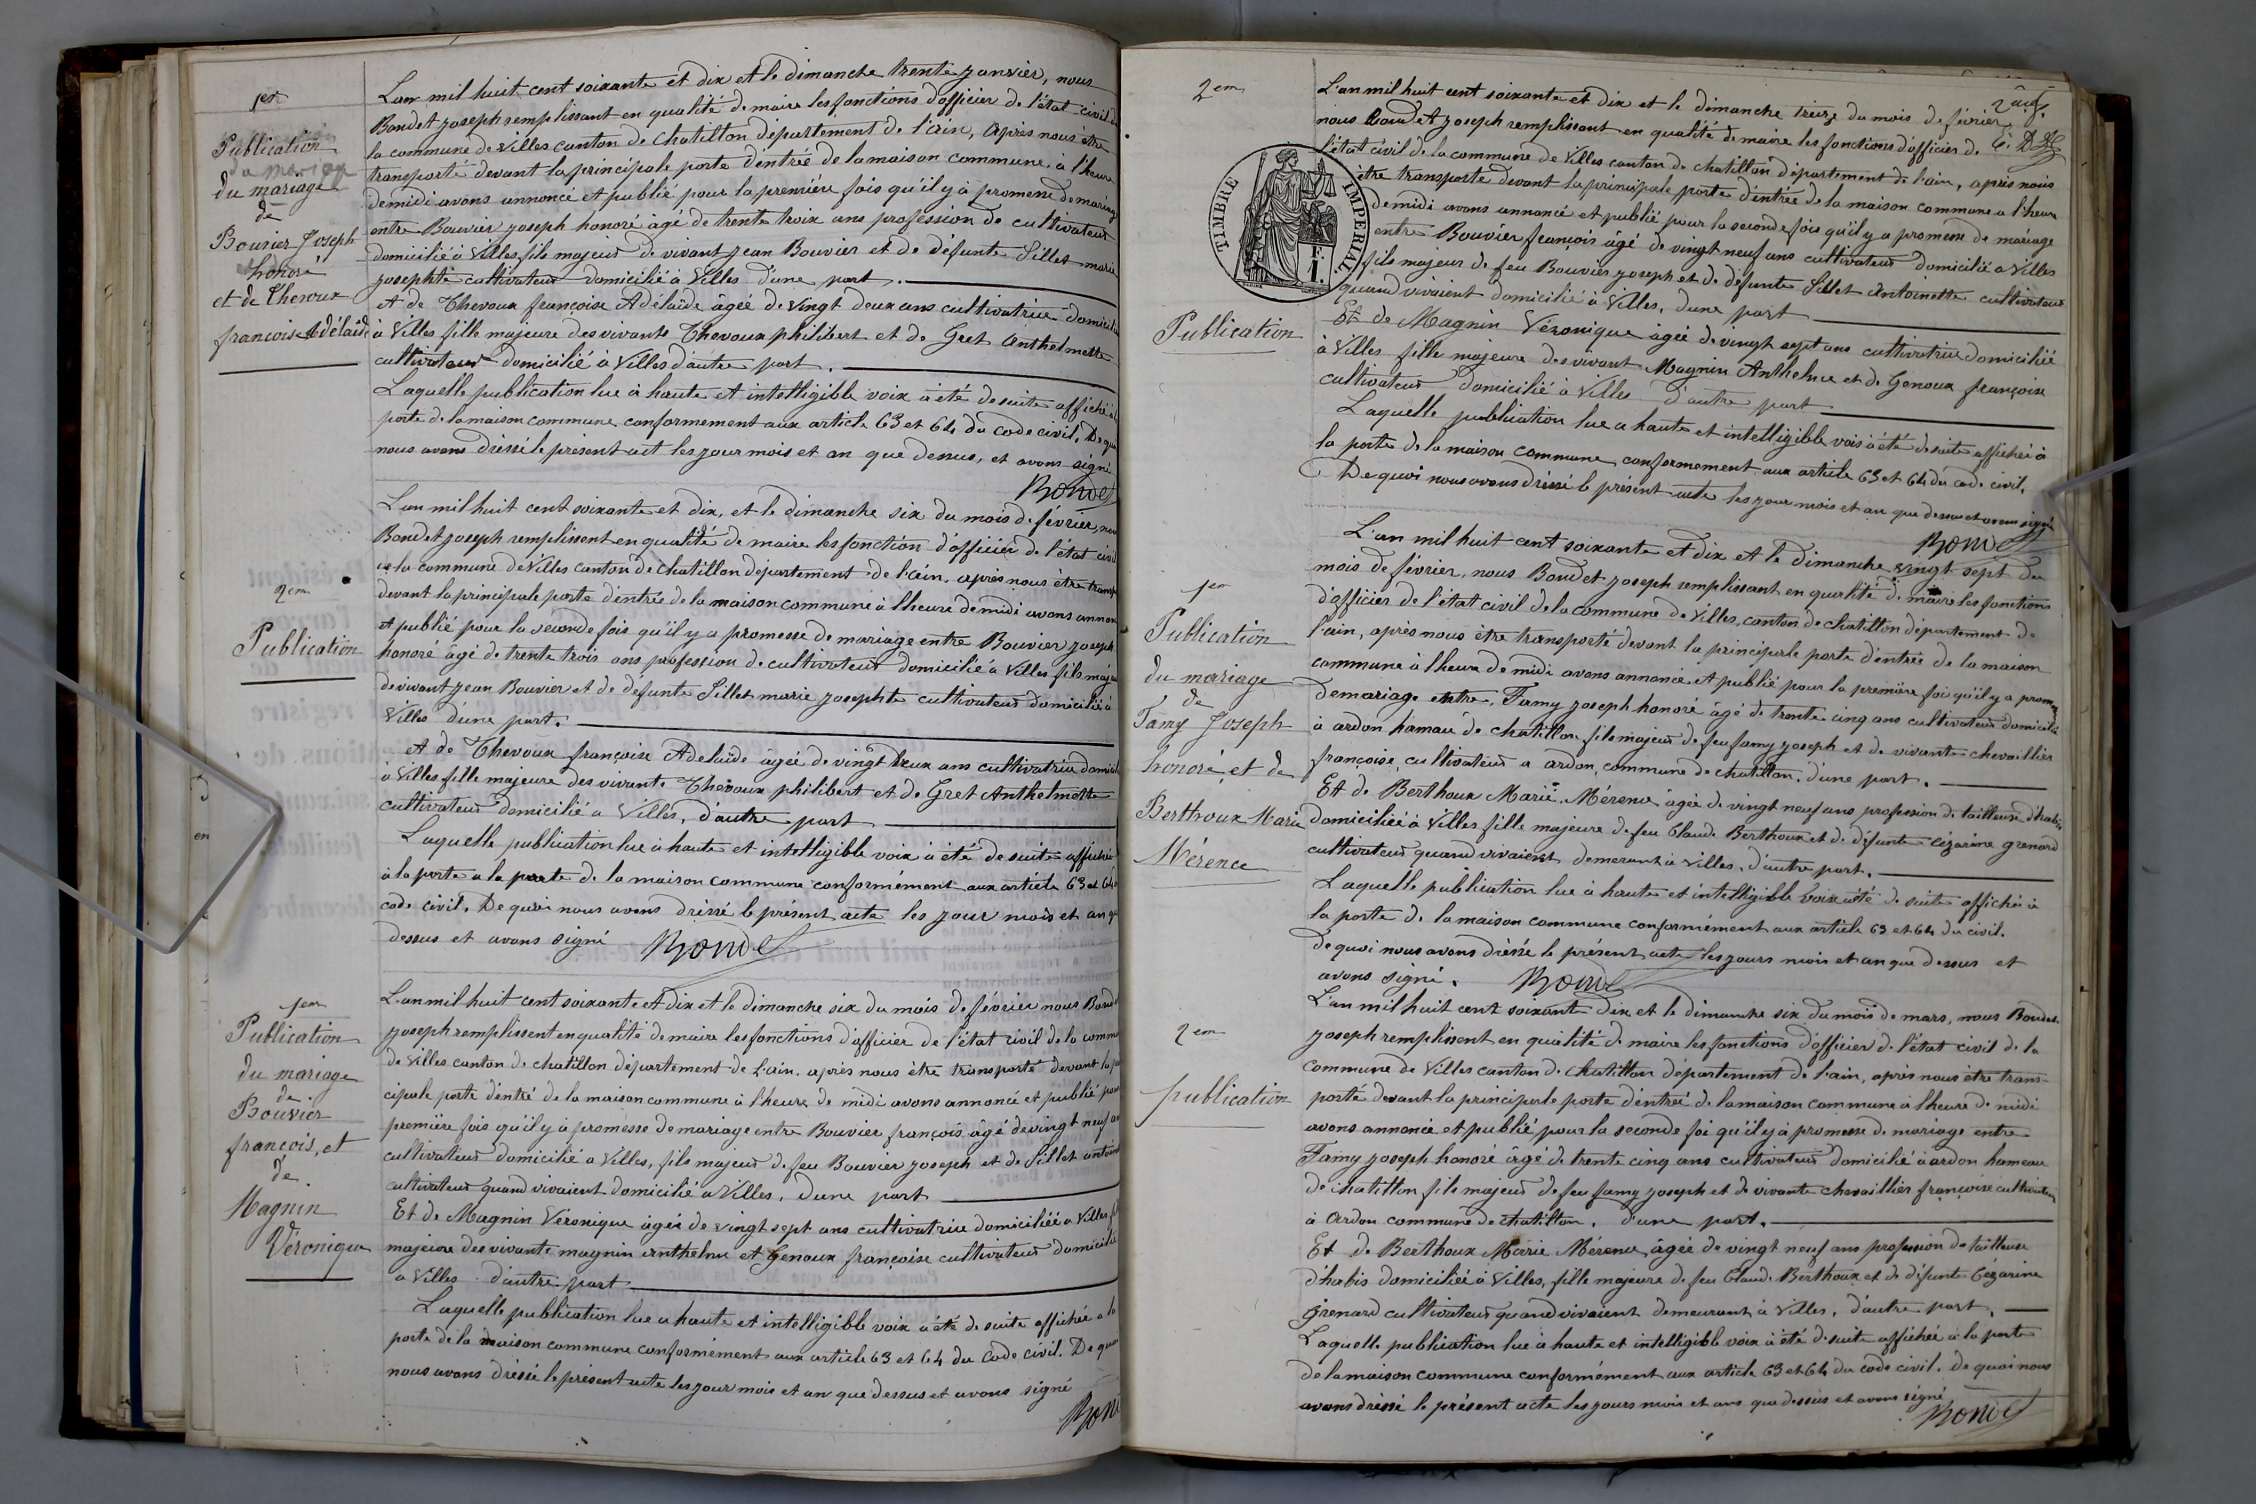 1er
Publication
du mariage
de
Bouvier Joseph
honoré
et de Thevoux
françoise Adélaïde
L'an mil huit cent soixante et dix et le dimanche trente janvier, nous
Bondet joseph remplissant en qualité de maire les fonctions d'officier de l'état civil de
la commune de Villes canton de chatillon département de l'ain, après nous être
transporté devant la principale porte d'entrée de la maison commune à l'heure
de midi avons annoncé et publié pour la première fois qu'il y à promesse de mariage
entre Bouvier joseph honoré âgé de trente trois ans profession de cultivateur
domicilié à Villes fils majeur de vivant jean Bouvier et de défunte Sillet marie
josephte cultivateur domicilié à Villes d'une part.
et de Thevoux françoise Adélaïde âgée de vingt deux ans cultivatrice domicilié
à Villes fille majeure des vivants Thevoux philibert et de Gret Anthelmette
cultivateur domicilié à Villes d'autre part.
Laquelle publication lue à haute et intelligible voix à été de suite affiché à la
porte de la maison commune conformement aux article 63 et 64 du code civil. De quoi
nous avons dréssé le présent act les jour mois et an que dessus, et avons signé
Bondet
2em
Publication
L'an mil huit cent soixante et dix, et le dimanche six du mois de février, nous
Bondet joseph remplissent en qualité de maire les fonction d'officier de l'état civil
de la commune de Villes canton de chatillon département de l'ain, après nous être transp
devant la principale porte d'entrée de la maison commune à l'heure de midi avons annon
et publié pour la seconde fois qu'il y a promesse de mariage entre Bouvier joseph
honoré âgé de trente trois ans profession de cultivateur domicilié à Villes fils maje
de vivant jean Bouvier et de défunte Sillet marie josephte cultivateur domicilié à
Villes d'une part.
et de Thevoux françoise Adelaïde âgée de vingt deux ans cultivatrice domicil
à Villes fille majeure des vivants Thevoux philibert et de Gret Anthelmette
cultivateur domicilié a Villes, d'autre part
Laquelle publication lue à haute et intelligible voix à été de suite affichée
à la porte a la porte de la maison commune conformément aux article 63 et 64
code civil. De quoi nous avons dréssé le présent acte les jour mois et an q
dessus et avons signé Bondet
1er
Publication
du mariage
de
Bouvier
françois, et
de
Magnin
Véronique
L'an mil huit cent soixante et dix et le dimanche six du mois de février nous Bond
joseph remplissent en qualité de maire les fonctions d'officier de l'état civil de la comm
de Villes canton de chatillon département de L'ain. après nous être transporté devant la pr
cipale porte d'entré de la maison commune à l'heure de midi avons annoncé et publié pour
première fois qu'il y à promesse de mariage entre Bouvier françois âgé de vingt neuf an
cultivateur domicilié a Villes, fils majeur de feu Bouvier joseph et de Sillet antoine
cultivateur quand vivaient domicilié a Villes, d'une part
Et de Magnin Véronique âgée de vingt sept ans cultivatrice domiciliée a Villes fi
majeure des vivants magnin anthelme et Genoux françoise cultivateur domicilié
a Villes d'autre part
Laquelle publication lue a haute et intelligible voix a été de suite affichée a la
porte de la maison commune conformément aux article 63 et 64 du Code civil. De quoi
nous avons dréssé le présent acte les jour mois et an que dessus et avons signé
Bon
2em
Publication
TIMBRE IMPERIAL
L'an mil huit cent soixante et dix et le dimanche treize du mois de février
nous Bondet joseph remplissant en qualité de maire les fonctions d'officier de
l'état civil de la commune de Villes canton de chatillon département de l'ain, après nous
être transporté devant la principale porte d'entrée de la maison commune a l'heure
de midi avons annoncé et publié pour la seconde fois qu'il y a promesse de mariage
entre Bouvier françois âgé de vingt neuf ans cultivateur domicilié a Villes
fils majeur de feu Bouvier joseph et de défunte Sillet Antoinette cultivateur
quand vivaient domicilié à Villes, d'une part
Et de Magnin Véronique âgée de vingt sept ans cultivatrice domiciliée
à Villes fille majeure des vivant Magnin Anthelme et de Genoux françoise
cultivateur domicilié à Villes d'autre part
Laquelle publication lue a haute et intelligible voix à été de suite affichée à
la porte de la maison commune conformement aux article 63 et 64 du code civil.
De quoi nous avons dréssé le présent acte les jour mois et an que dessus et avons signé
Bondet
1er
Publication
du mariage
de
Famy Joseph
honoré, et de
Berthoux Marie
Mérence
L'an mil huit cent soixante et dix et le dimanche vingt sept du
mois de février, nous Bondet joseph remplissant en qualité de maire les fonctions
d'officier de l'état civil de la commune de Villes, canton de chatillon département de
l'ain, après nous être transporté devant la principale porte d'entrée de la maison
commune à l'heure de midi avons annoncé et publié pour la première foi qu'il y a prom
de mariage entre Famy joseph honoré âgé de trente cinq ans cultivateur domicilié
à ardon hamau de chatillon fils majeur de feu famy joseph et de vivante chevaillier
françoise, cultivateur a ardon, commune de chatillon. d'une part.
Et de Berthoux Marie Mérence âgée de vingt neuf ans profession de tailleuse d'habis
domiciliée à Villes fille majeure de feu Claude Berthoux et de défunte Cézarine grenard
cultivateur quand vivaient demeurant à Villes. d'autre part.
Laquelle publication lue à haute et intelligible voix a été de suite affichée à
la porte de la maison commune conformément aux article 63 et 64 du civil.
de quoi nous avons dréssé le présent acte les jours mois et an que dessus et
avons signé. Bondet
2em
publication
L'an mil huit cent soixante dix et le dimanche six du mois de mars, nous Bondet
joseph remplissent en qualité de maire les fonctions d'officier de l'état civil de la
commune de Villes canton de Chatillon département de l'ain, après nous être trans-
porté devant la principale porte d'entrée de la maison commune à l'heure de midi
avons annoncé et publié pour la seconde foi qu'il y à promesse de mariage entre
Famy joseph honoré âgé de trente cinq ans cultivateur domicilié à ardon hameau
de chatillon fils majeur de feu famy joseph et de vivante chevaillier françoise cultivateur
à Ardon commune de chatillon. d'une part.
Et de Berthoux Marie Mérence, âgée de vingt neuf ans profession de tailleuse
d'habis domiciliée à Villes, fille majeure de feu Claude Berthoux et de défunte Cézarine
grenard cultivateur quand vivaient demeurant à Villes, d'autre part.
Laquelle publication lue à haute et intelligible voix à été de suite affichée à la porte
de la maison commune conformément aux article 63 et 64 du code civil. de quoi nous
avons dréssé le présent acte les jours mois et ans que dessus et avons signé
Bondet